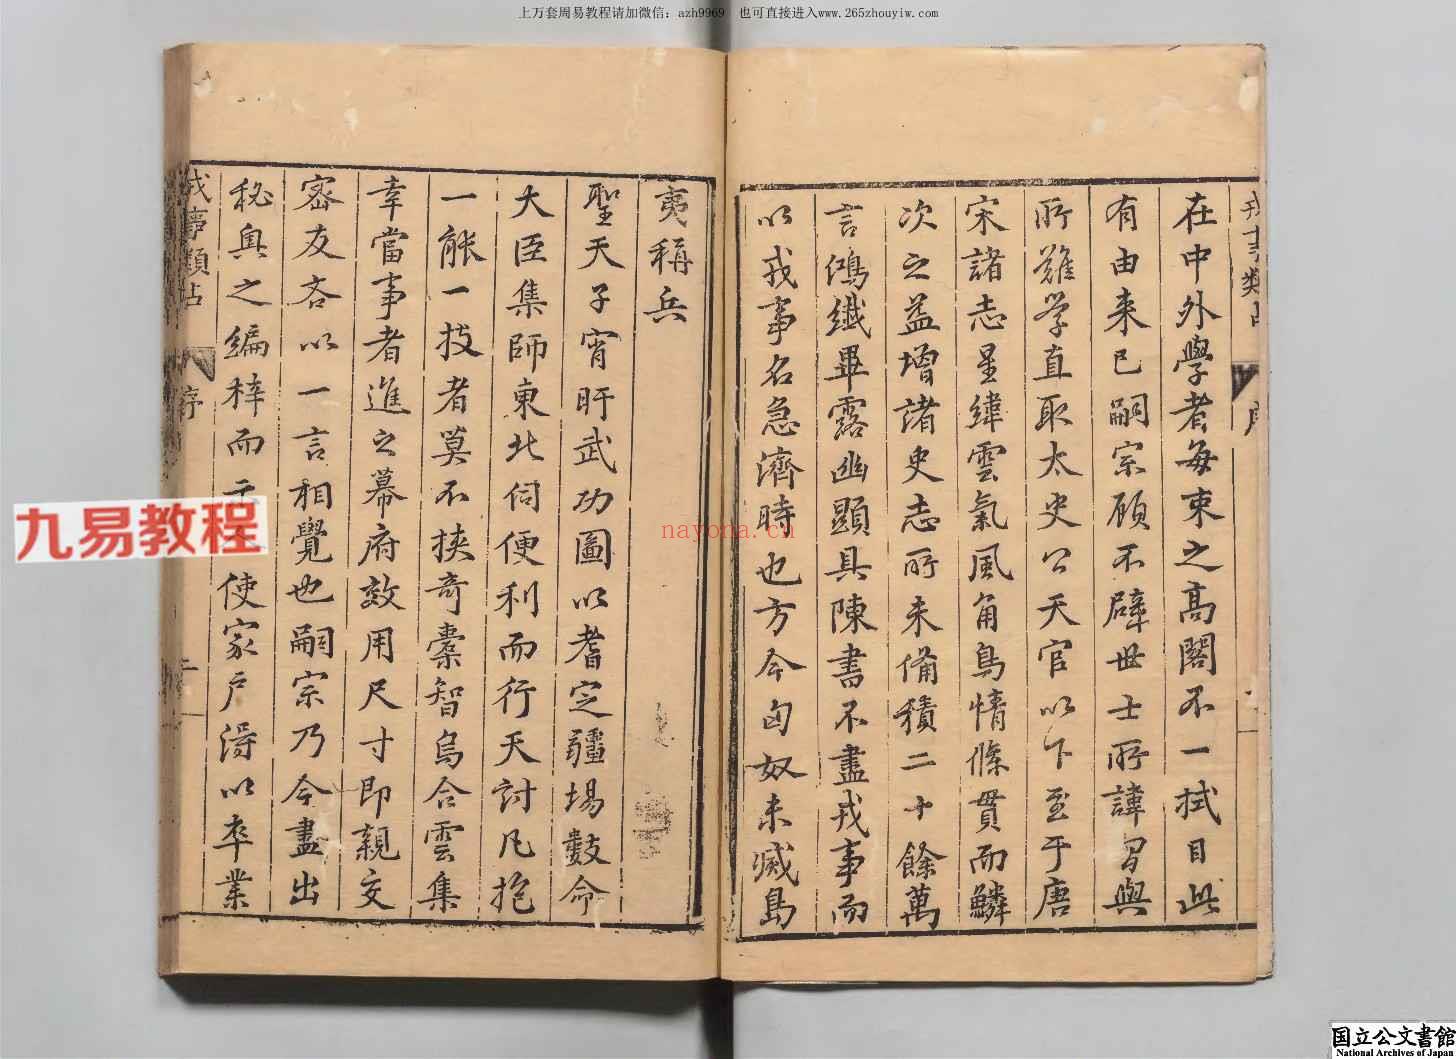 上万套周易教程请加微信：azh9969　也可直接进入www.265zhouyiw.com
在中外學者每束之高閣不一拭目此
有由来已嗣宗頋不辟世士所諱習與
所難学直取太史公天官以下至于唐
宋諸志星緯雲氣風角鳥情條貫而鱗
次之益增諸史志所未備積二十餘萬
言鴻纖畢露幽顯具陳書不盡戎事而
以戎事名急濟時也方今匈奴未滅島
夷稱兵
聖天子宵旰武功圖以耆定疆場數命
大臣集師東北伺便利而行天討凡抱
一能一技者莫不挾竒橐智烏合雲集
幸當事者進之幕府效用尺寸即親交
密友吝以一言相覺也嗣宗乃今盡出
秘奥之編梓而
使家戶淂以卒業
戎事類占
序
九易教程
nayona.cn
国立公文書館
National Archives of Japan